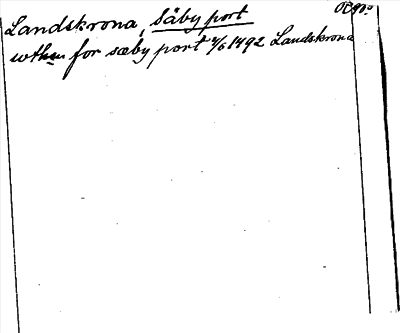 Landskrona, Säby port
wthen for sæby port 4/6 1492 Landskrona